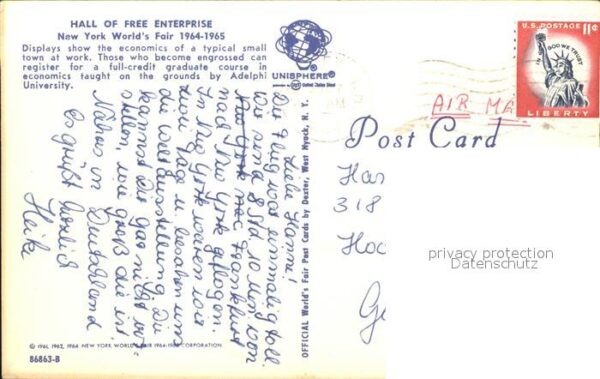 HALL OF FREE ENTERPRISE
New York World's Fair 1964-1965
Displays show the economics of a typical small
town at work. Those who become engrossed can
register for a full-credit graduate course in
economics taught on the grounds by Adelphi
University.
UNISPHERE®
presented by United States Steel
© 1961, 1962, 1964 NEW YORK WORLD'S FAIR 1964-1965 CORPORATION
86863-B
OFFICIAL World's Fair Post Cards by Dexter, West Nyack, N. Y.
U.S. POSTAGE 11¢
IN GOD WE TRUST
LIBERTY
AIR MA
Post Card
Liebe
Der Flug war einmalig toll
Wir sind 8 Std. 10 Min. von
New York nach Frankfurt
nach New York geflogen.
In New York waren wir
zwei Tage u. besahen uns
die Weltausstellung. Du
kannst Dir gar nicht vor-
stellen, wie groß die ist
Näheres in Deutschland
Es grüßt herzlich
Heike
Han
318
Hoc
Ge
privacy protection
Datenschutz